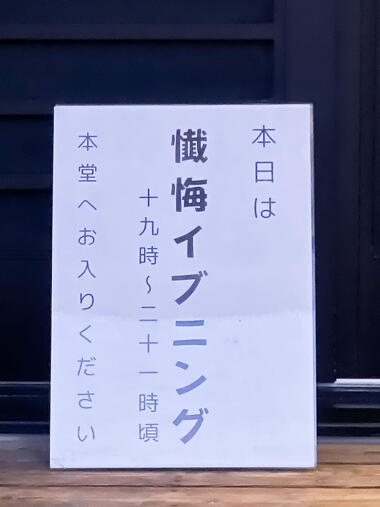 本日は
懺悔イブニング
十九時～二十一時頃
本堂へお入りください